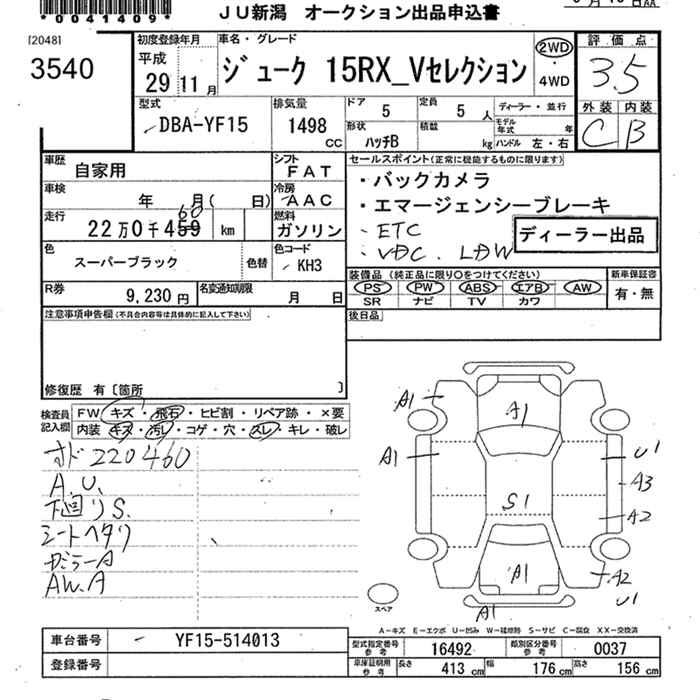 *0041409*
JU新潟 オークション出品申込書
[2048]
3540
初度登録年月
平成
29年 11月
車名・グレード
ジューク 15RX_Vセレクション
2WD
4WD
評価点
3.5
外装 内装
C B
型式
DBA-YF15
排気量
1498 CC
ドア 5
定員 5 人
形状 ハッチB
積載 kg
ディーラー・並行
モデル年式 年
ハンドル 左・右
車歴
自家用
シフト
FAT
車検
年 月( 日)
冷房
AAC
走行
22万0千459 km
60
燃料
ガソリン
色
スーパーブラック
色替
色コード
KH3
R券
9,230円
名変通知期限
月 日
セールスポイント(正常に機能するものに限ります)
・バックカメラ
・エマージェンシーブレーキ
・ETC
・VDC. LDW
ディーラー出品
装備品 (純正品に限り○をつけてください)
PS PW ABS エアB AW
SR ナビ TV カワ
新車保証書
有・無
後日品
注意事項申告欄(不具合内容等は具体的に記入して下さい)
修復歴 有〔箇所 〕
検査員記入欄
FW キズ・飛石・ヒビ割・リペア跡・×要
内装 キズ・汚レ・コゲ・穴・スレ・キレ・破レ
オド220460
A.U.
下廻りS.
シートヘタリ
ガラーA
AW.A
A1
A1
A1
U1
A3
S1
A2
A1
A2
A1
U1
スペア
A-キズ E-エクボ U-凹み W-補修跡 S-サビ C-腐食 XX-交換済
車台番号
YF15-514013
登録番号
型式指定番号 参考
16492
類別区分番号 参考
0037
車庫証明用 参考
長さ 413 cm
幅 176 cm
高さ 156 cm